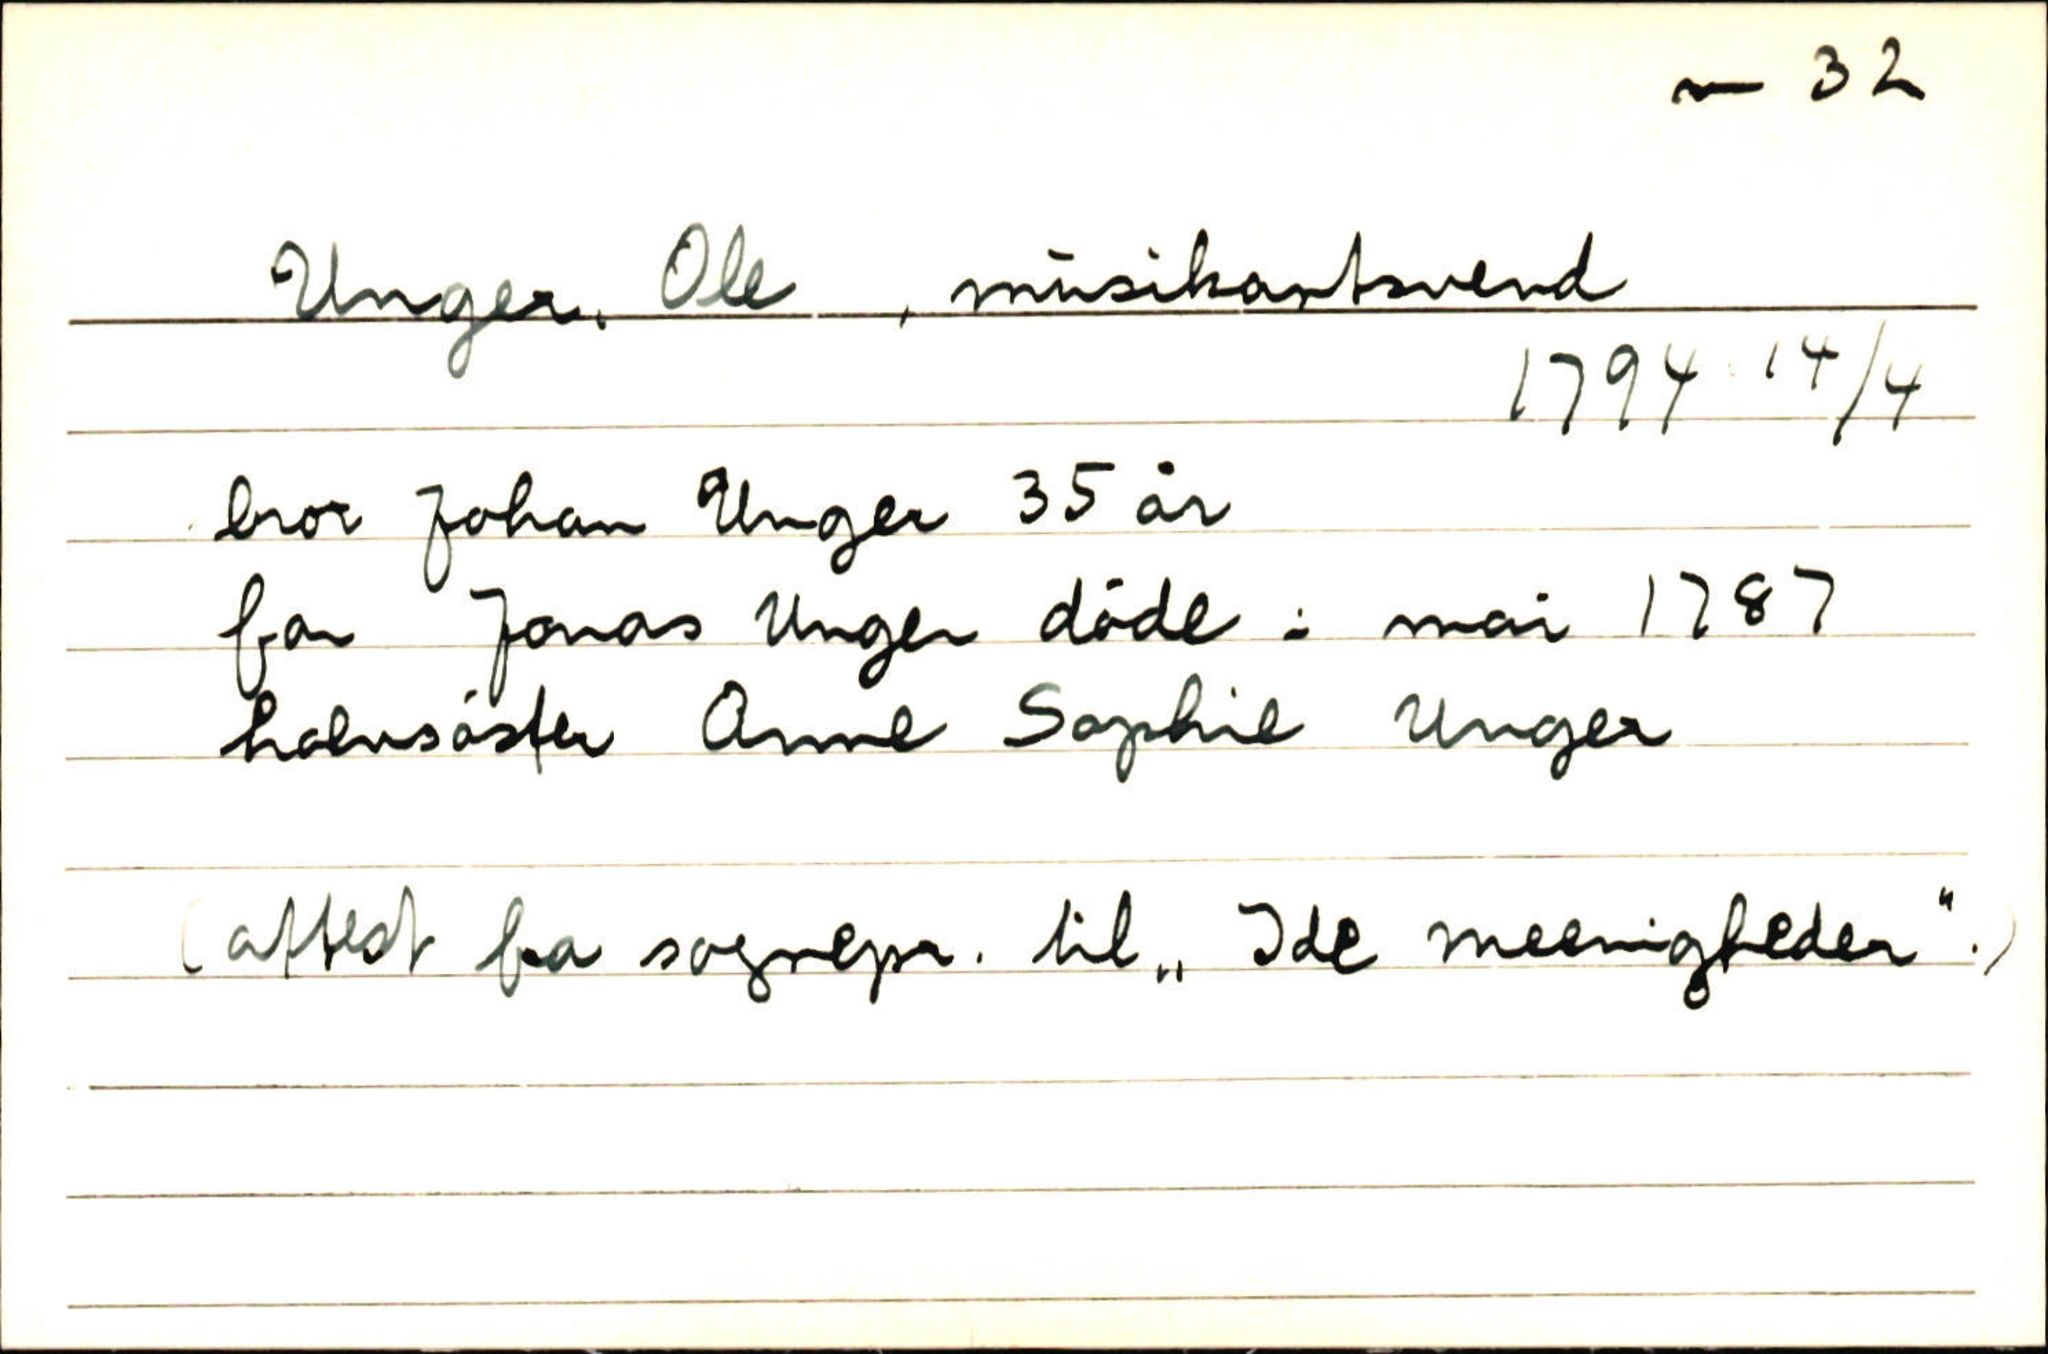 ~ 32
Unger, Ole , musikantsvend
1794 14/4
bror Johan Unger 35 år
far Jonas Unger døde i mai 1787
halvsøster Anne Sophie Unger
(attest fra sognepr. til „Ide meenigheder“.)